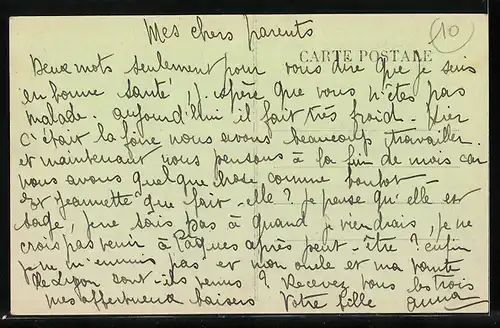 10
Mes chers parents
CARTE POSTALE
Deux mots seulement pour vous dire que je suis
en bonne santé, j'espère que vous n'êtes pas
malade. aujourd'hui il fait très froid. Hier
c'était la foire nous avons beaucoup travailler.
et maintenant nous pensons à la fin de mois car
nous avons quelque chose comme boulot
Et Jeannette que fait-elle? je pense qu'elle est
sage, je ne sais pas à quand je viendrais, je ne
crois pas venir à Pâques après peut-être? enfin
je ne m'ennuis pas et mon oncle et ma tante
Redigon sont-ils venus? Recevez vous les trois
mes affectueux baisers Votre fille anna